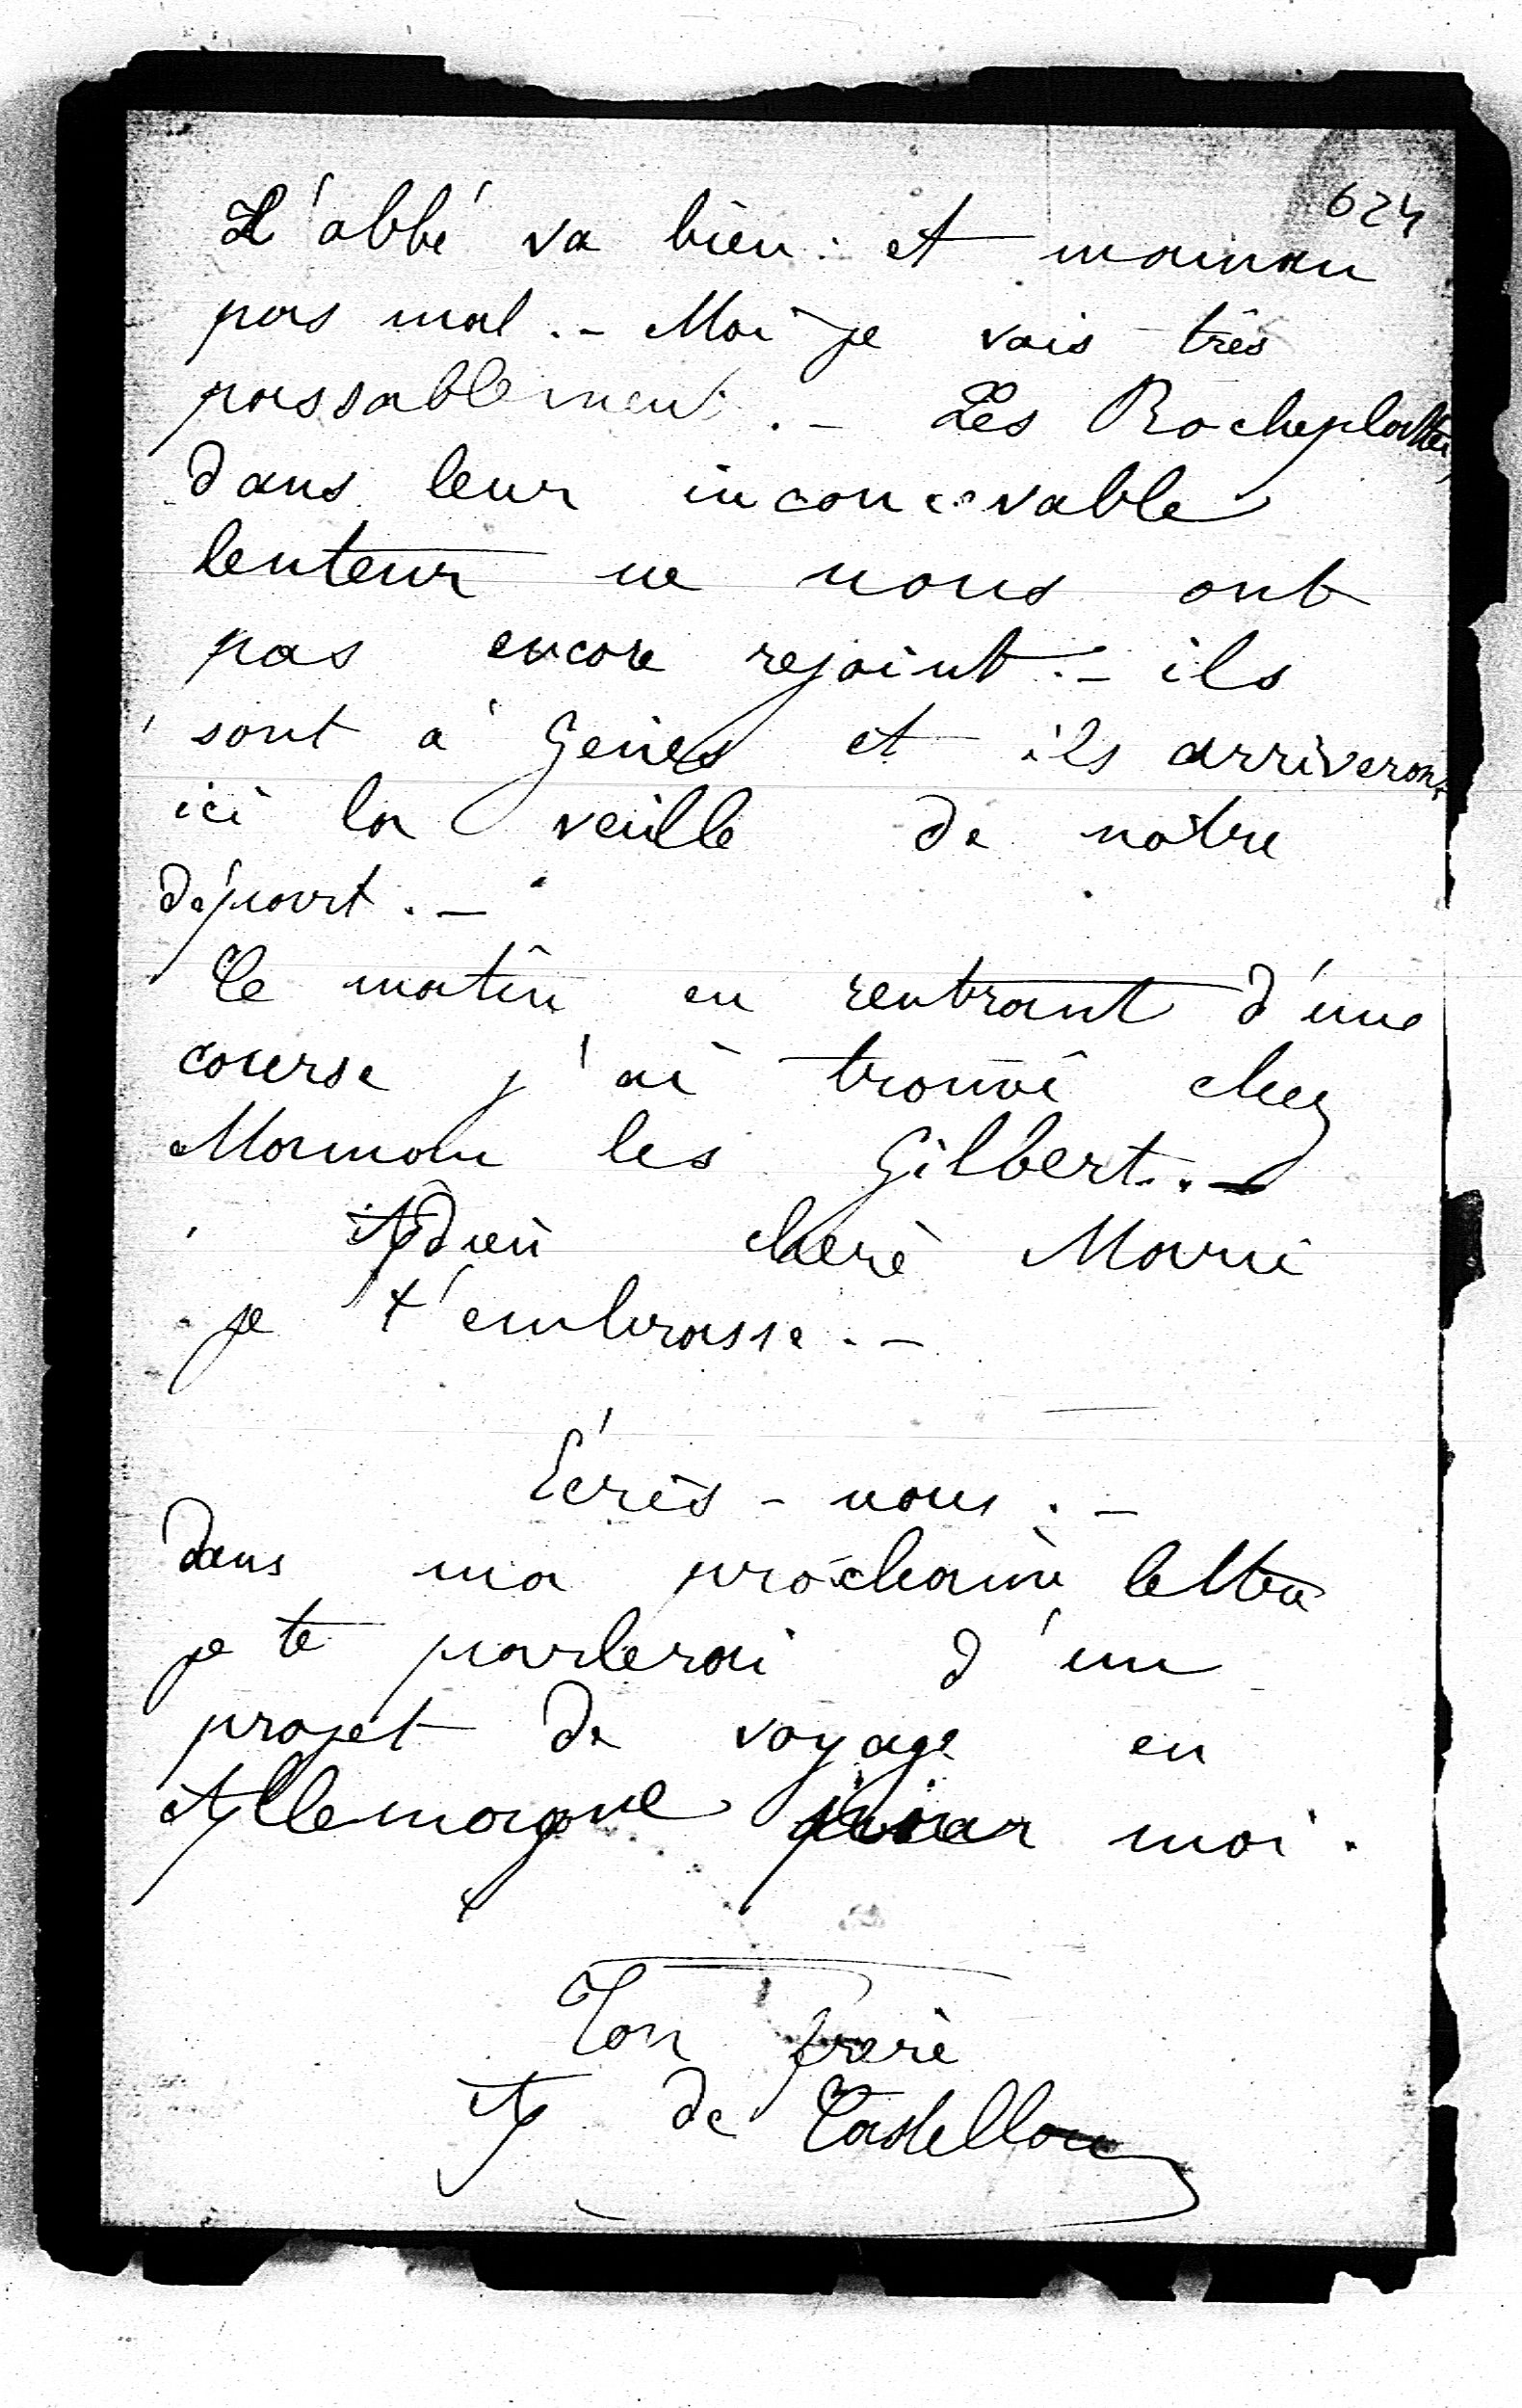 624
L'abbé va bien. et maman
pas mal. - Moi je vais très
passablement. - Les Rocheplatte,
dans leur inconcevable
lenteur ne nous ont
pas encore rejoint. - ils
sont à Gênes et ils arriveront
ici la veille de notre
départ. -
Ce matin en rentrant d'une
course j'ai trouvé chez
Maman les Gilbert. -
Adieu chère Marie
je t'embrasse. -
Écris-nous. -
Dans ma prochaine lettre
je te parlerai d'un
projet de voyage en
Allemagne pour moi.
Ton frère
A de Castellane